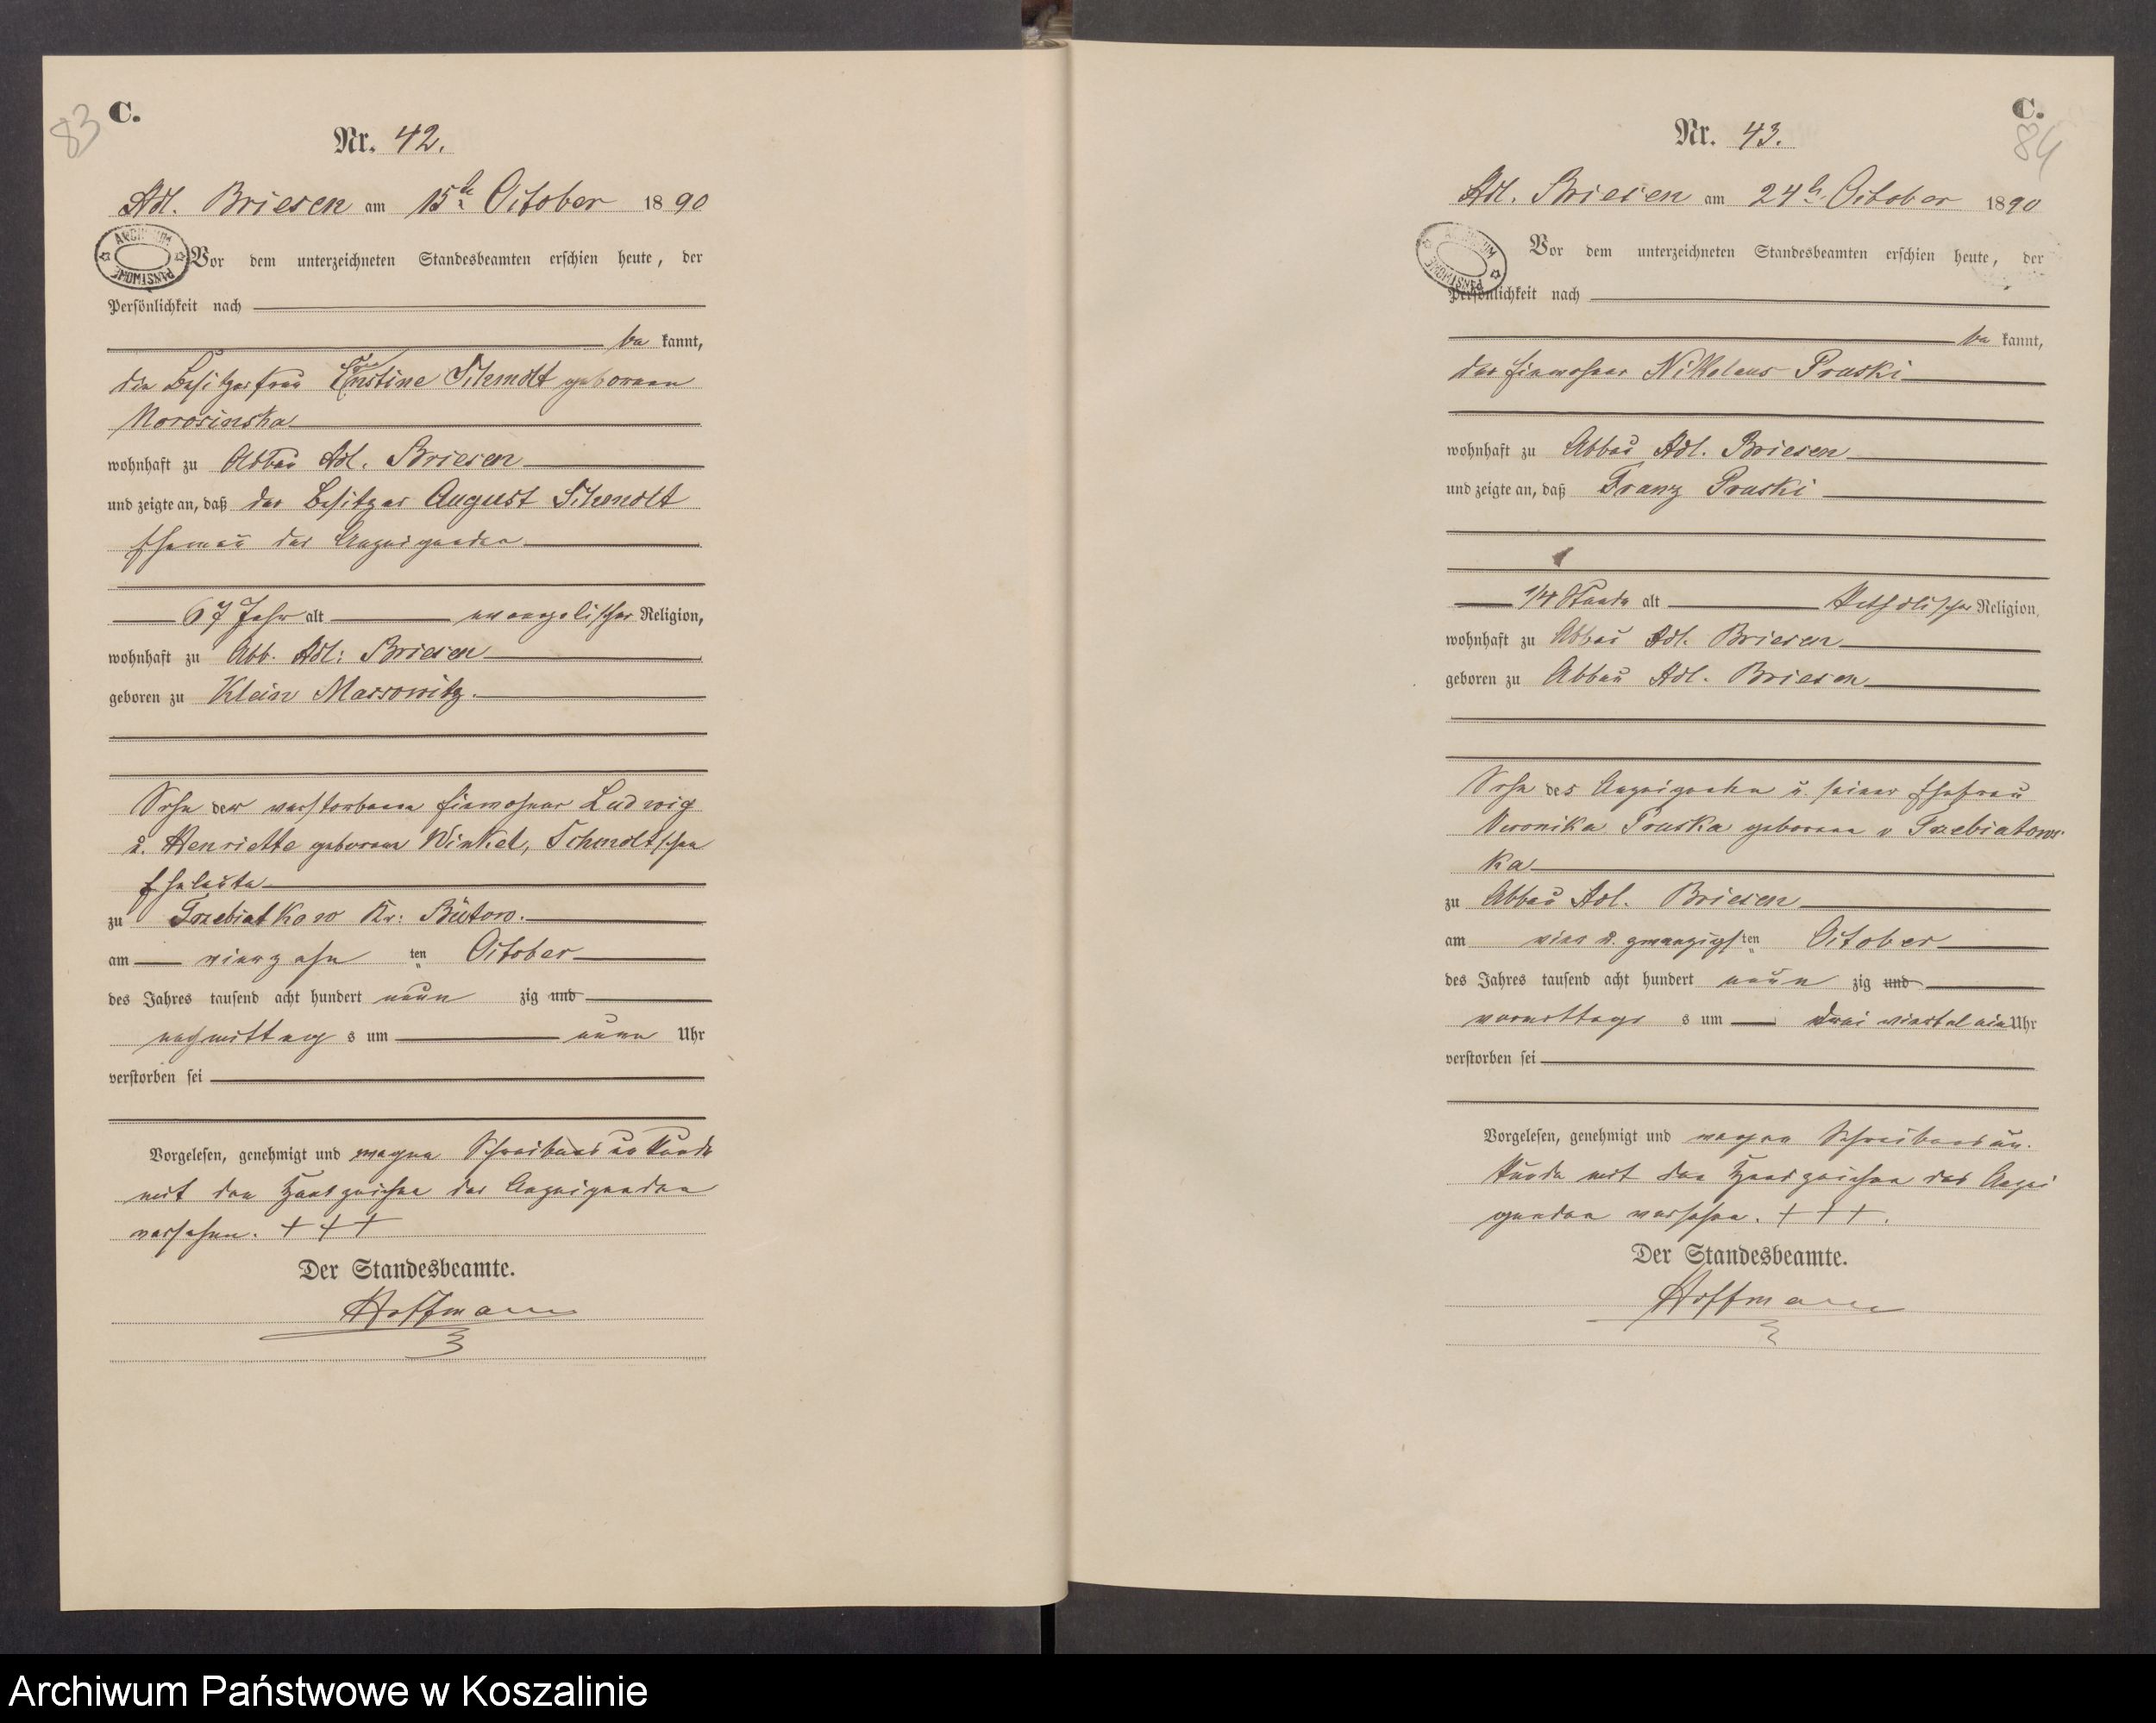 83
C.
Nr. 42.
Adl. Briesen am 15t October 1890
ARCHIWUM PAŃSTWOWE
Vor dem unterzeichneten Standesbeamten erschien heute, der
Persönlichkeit nach
be kannt,
die Besitzerfrau Ernstine Schmolt geborene
Morosinska
wohnhaft zu Abbau Adl. Briesen
und zeigte an, daß der Besitzer August Schmolt
Ehemañ der Anzeigenden
67 Jahr alt evangelischer Religion,
wohnhaft zu Abb. Adl: Briesen
geboren zu Klein Massowitz.
Sohn der verstorbenen Einwohner Ludwig
u. Henriette geborene Winkel, Schmolt'schen
Eheleute
zu Trzebiatkow Kr: Bütow.
am vierzehn ten October
des Jahres tausend acht hundert neun zig und
nachmittag s um neun Uhr
verstorben sei
Vorgelesen, genehmigt und wegen Schreibensunkunde
mit den Handzeichen der Anzeigenden
versehen. + + +
Der Standesbeamte.
Hoffmann
C.
84
Nr. 43.
Adl. Briesen am 24t October 1890
ARCHIWUM PAŃSTWOWE
Vor dem unterzeichneten Standesbeamten erschien heute, der
Persönlichkeit nach
be kannt,
der Einwohner Nikolaus Pruski
wohnhaft zu Abbau Adl. Briesen
und zeigte an, daß Franz Pruski
1/4 Stunde alt katholischer Religion,
wohnhaft zu Abbau Adl. Briesen
geboren zu Abbau Adl. Briesen
Sohn des Anzeigenden u. seiner Ehefrau
Veronika Pruska geborene v Trzebiatows-
ka
zu Abbau Adl. Briesen
am vier u. zwanzigsten October
des Jahres tausend acht hundert neun zig und
vormittags s um drei viertel ein Uhr
verstorben sei
Vorgelesen, genehmigt und wegen Schreibensun-
kunde mit den Handzeichen des Anzei
genden versehen. + + +.
Der Standesbeamte.
Hoffmann
Archiwum Państwowe w Koszalinie